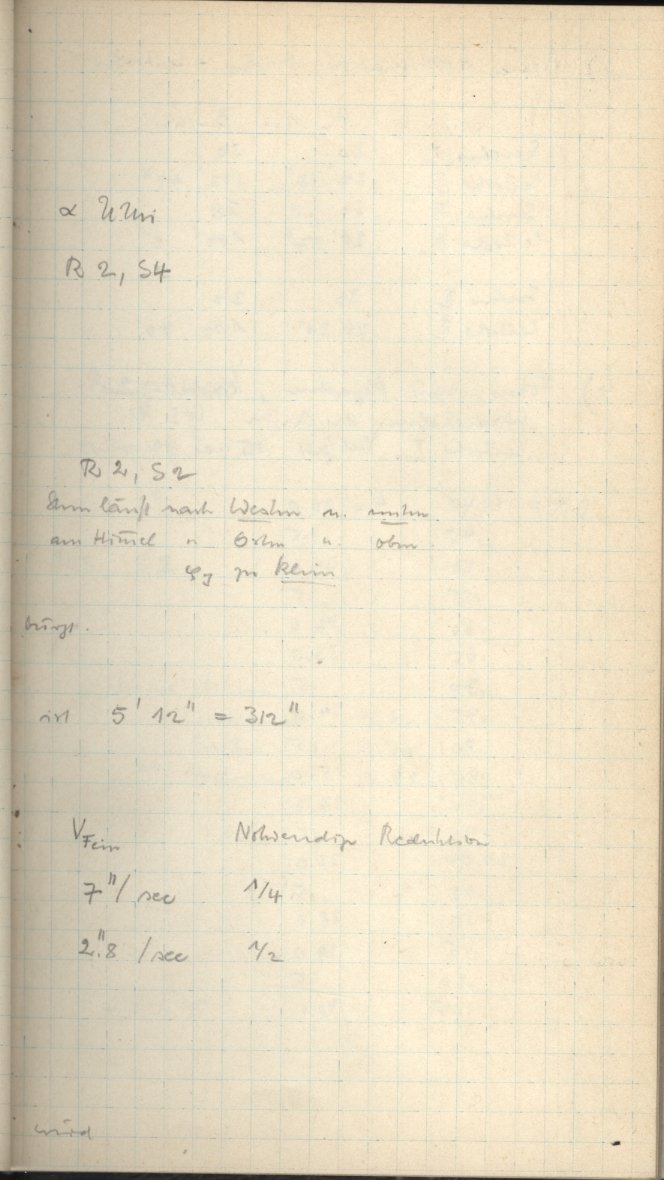 α UMi
R 2, S4
R 2, S2
Stern läuft nach Westen u. unten
am Himmel n Osten u. oben
zu klein
ist 5' 12" = 312"
V Fein Notwendige Reduktion
7"/sec 1/4
2."8 /sec 1/2
wird